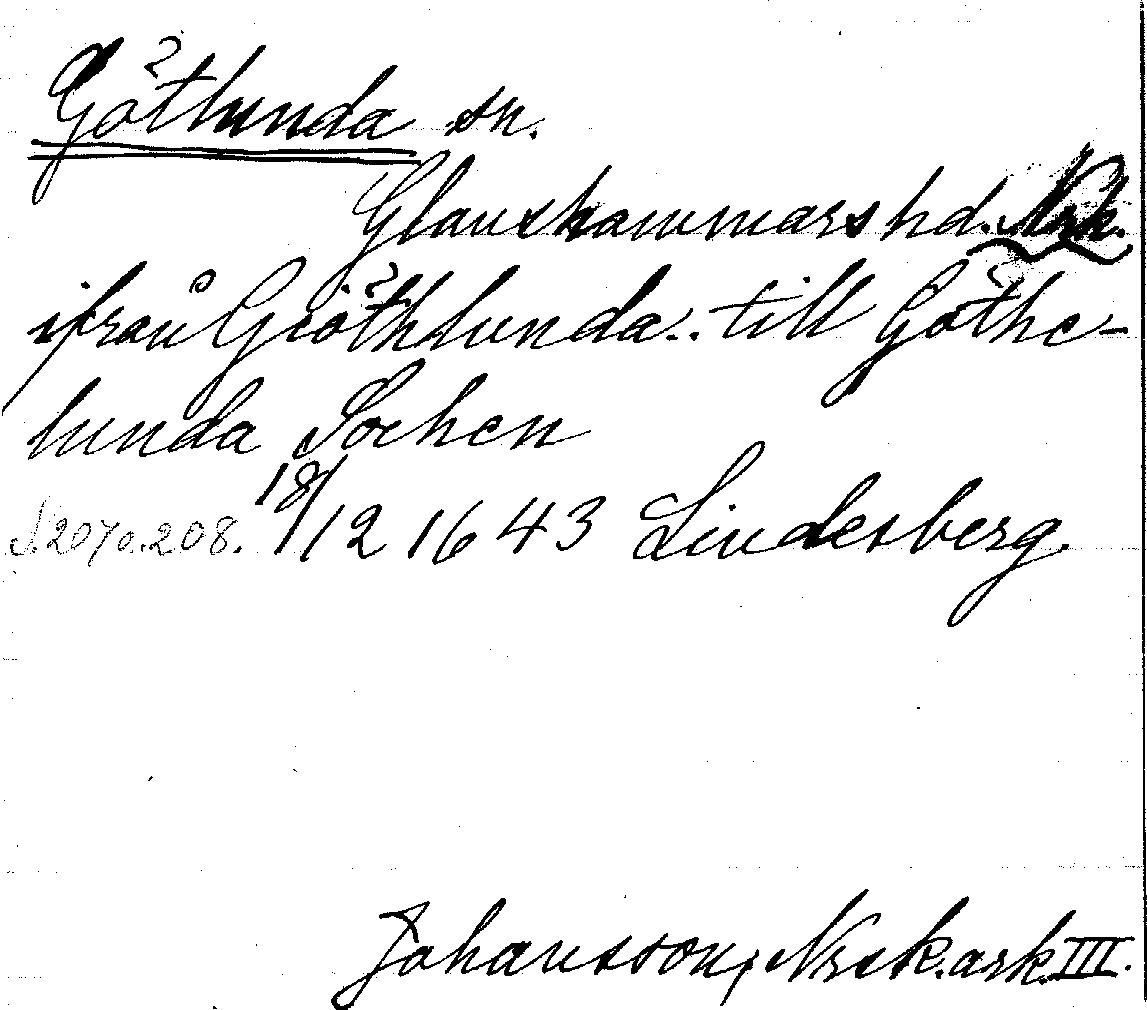 Götlunda sn.
Glanshammars hd. Nrk.
ifrån Giöthlunda.. till Göthe-
lunda Sochen
S. 207 o. 208. 18/12 1643 Lindesberg.
Johansson, Nrsk. ark. III.